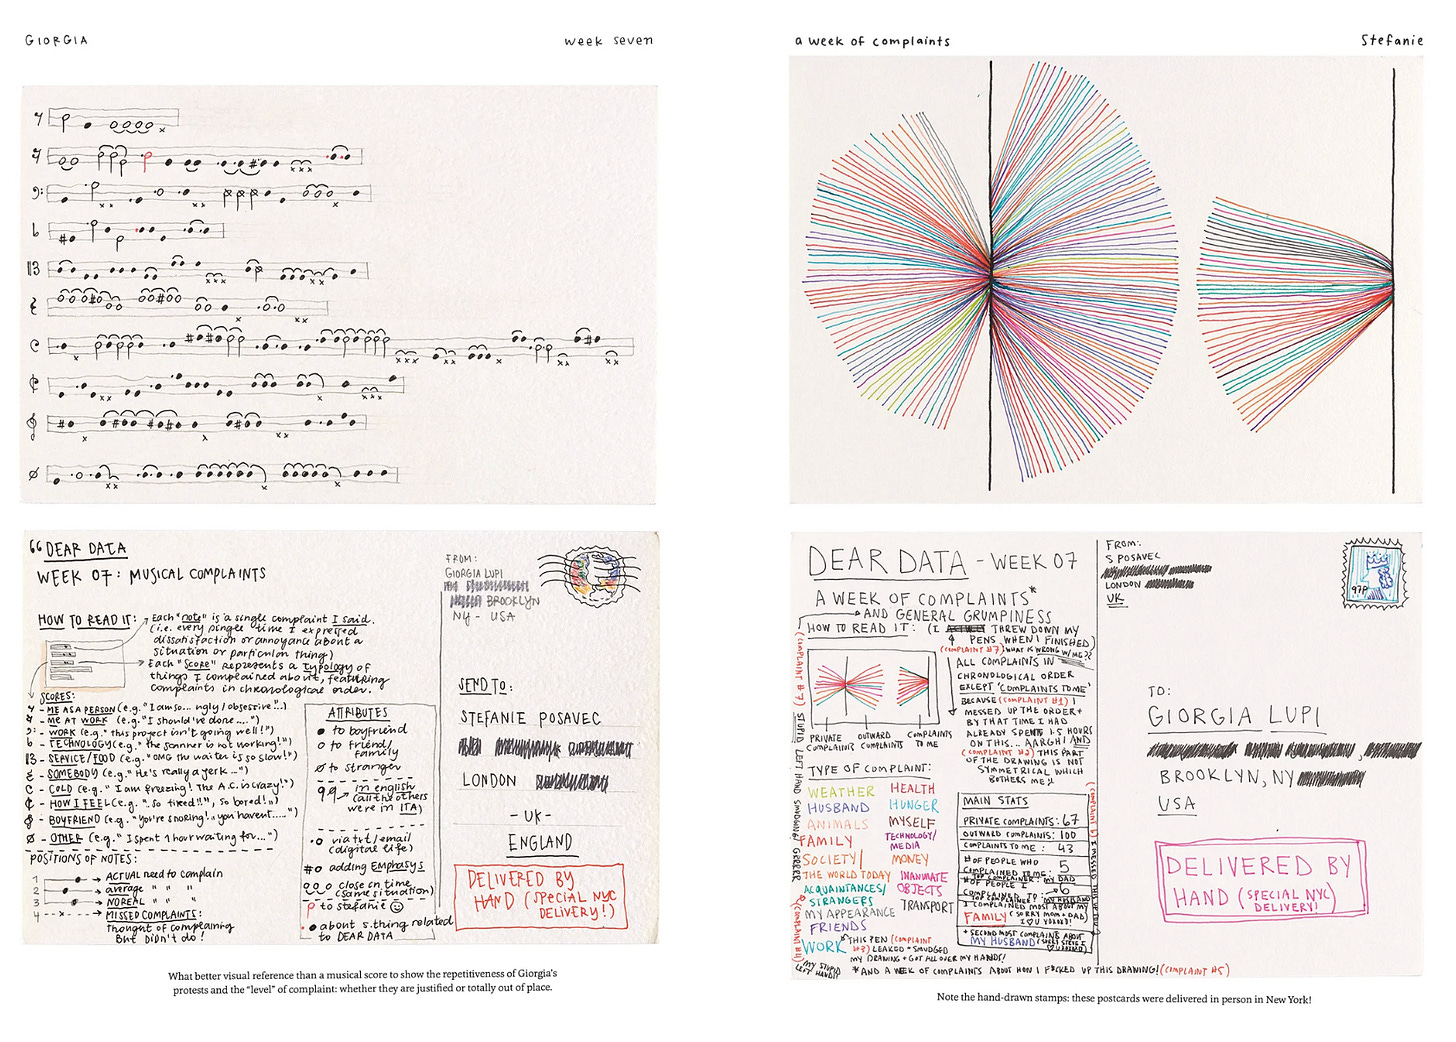 GIORGIA
week seven
a week of complaints
Stefanie
" DEAR DATA
WEEK 07: MUSICAL COMPLAINTS
HOW TO READ IT:
Each "note" is a single complaint I said.
(i.e. every single time I expressed
dissatisfaction or annoyance about a
situation or particular thing)
Each "score" represents a typology of
things I complained about, featuring
complaints in chronological order.
SCORES:
- ME AS A PERSON (e.g. "I am so... ugly/obsessive..")
- ME AT WORK (e.g. "I should've done....")
- WORK (e.g. "this project isn't going well!")
- TECHNOLOGY (e.g. "the scanner is not working!")
- SERVICE/FOOD (e.g. "OMG the waiter is so slow!")
- SOMEBODY (e.g. "He's really a jerk...")
- COLD (e.g. "I am freezing! The A.C. is crazy!")
- HOW I FEEL (e.g. "..so tired!", so bored!")
- BOYFRIEND (e.g. "You're snoring!, you haven't.....")
- OTHER (e.g. "I spent 1 hour waiting for...")
POSITIONS OF NOTES:
1 → ACTUAL need to complain
2 → average " "
3 → NO REAL " "
4 - -x- → MISSED COMPLAINTS:
Thought of complaining
But Didn't do!
ATTRIBUTES
to boyfriend
to friend/
family
to stranger
in english
(all the others
were in ITA)
via txt/email
(digital life)
# adding EMPHASYS
close on time
(same situation)
to stefanie
about s.thing related
to DEAR DATA
FROM:
GIORGIA LUPI
BROOKLYN
NY - USA
SEND TO:
STEFANIE POSAVEC
LONDON
- UK -
ENGLAND
DELIVERED BY
HAND (SPECIAL NYC
DELIVERY!)
What better visual reference than a musical score to show the repetitiveness of Giorgia's
protests and the "level" of complaint: whether they are justified or totally out of place.
DEAR DATA - WEEK 07
A WEEK OF COMPLAINTS*
AND GENERAL GRUMPINESS
HOW TO READ IT:
(I THREW DOWN MY
PENS WHEN I FINISHED)
(COMPLAINT #7) WHAT IS WRONG W/ME??
ALL COMPLAINTS IN
CHRONOLOGICAL ORDER
EXCEPT 'COMPLAINTS TO ME'
BECAUSE (COMPLAINT #1) I
MESSED UP THE ORDER +
BY THAT TIME I HAD
ALREADY SPENT 1.5 HOURS
ON THIS... AARGH! AND
(COMPLAINT #2) THIS PART
OF THE DRAWING IS NOT
SYMMETRICAL WHICH
BOTHERS ME
PRIVATE COMPLAINTS
OUTWARD COMPLAINTS
COMPLAINTS TO ME
STUPID LEFT HAND SMUDGING! GRRRR
TYPE OF COMPLAINT:
WEATHER
HUSBAND
ANIMALS
FAMILY
SOCIETY/
THE WORLD TODAY
ACQUAINTANCES/
STRANGERS
MY APPEARANCE
FRIENDS
WORK
HEALTH
HUNGER
MYSELF
TECHNOLOGY/
MEDIA
MONEY
INANIMATE
OBJECTS
TRANSPORT
MAIN STATS
PRIVATE COMPLAINTS: 67
OUTWARD COMPLAINTS: 100
COMPLAINTS TO ME: 43
# OF PEOPLE WHO
COMPLAINED TO ME: 5
TOP COMPLAINER: MY DAD
# OF PEOPLE I
COMPLAINED TO: 6
TOP COMPLAINEE: MY HUSBAND
I COMPLAINED MOST ABOUT MY
FAMILY (SORRY MOM + DAD)
* SECOND MOST COMPLAINTS ABOUT
MY HUSBAND
* THIS PEN (COMPLAINT
#3) LEAKED + SMUDGED
MY DRAWING + GOT ALL OVER MY HANDS!
MY STUPID
LEFT HAND!!
*AND A WEEK OF COMPLAINTS ABOUT HOW I F*CKED UP THIS DRAWING! (COMPLAINT #5)
FROM:
S POSAVEC
LONDON
UK
97P
TO:
GIORGIA LUPI
BROOKLYN, NY
USA
DELIVERED BY
HAND (SPECIAL NYC
DELIVERY!)
Note the hand-drawn stamps: these postcards were delivered in person in New York!